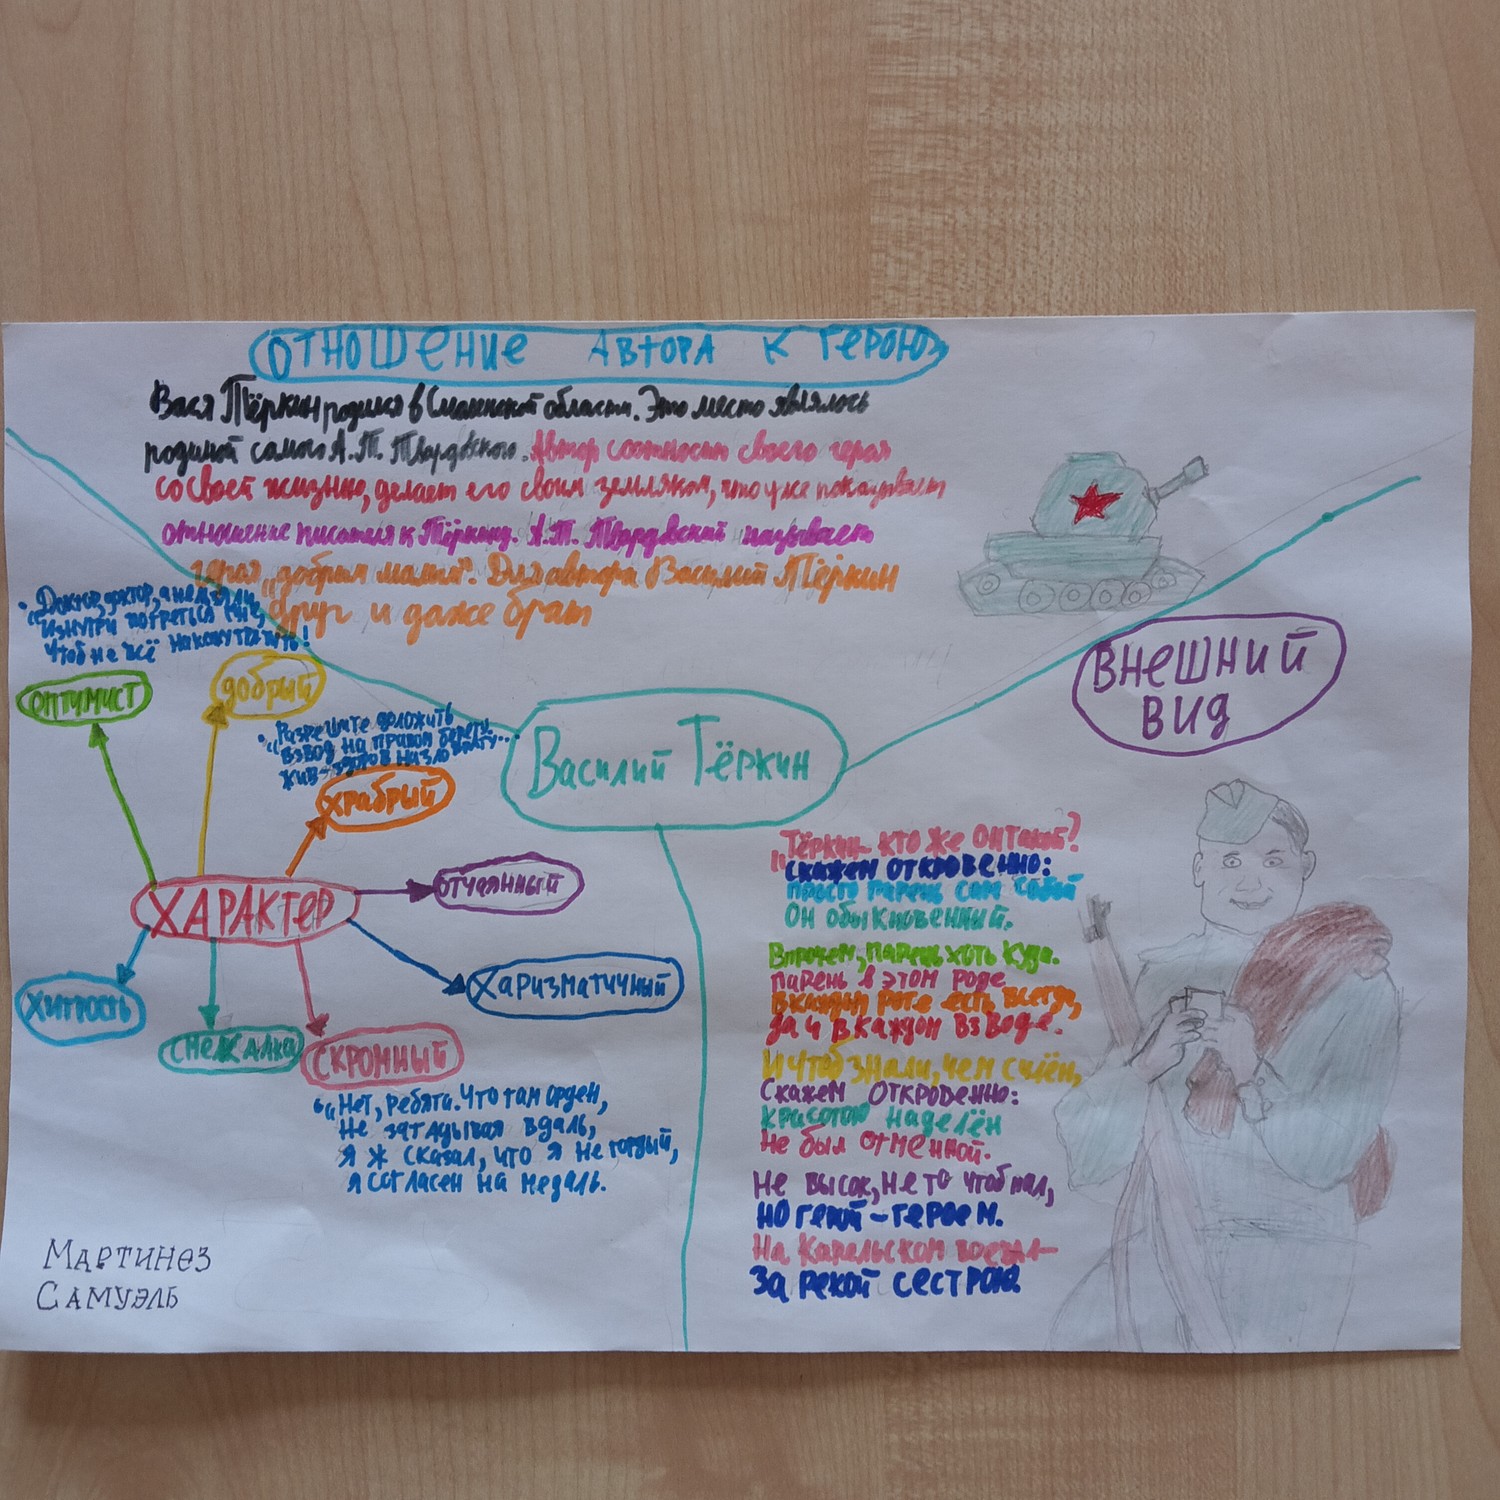 ОТНОШЕНИЕ АВТОРА К ГЕРОЮ
Вася Тёркин родился в Смоленской области. Это место являлось
родиной самого А.Т. Твардовского. Автор соотносит своего героя
со своей жизнью, делает его своим земляком, что уже показывает
отношение писателя к Тёркину. А.Т. Твардовский называет
героя „добрый малый". Для автора Василий Тёркин
друг и даже брат
„Доктор, доктор, а нельзя ли
изнутри погреться мне,
Чтоб не всё на кожу тратить!
ОПТИМИСТ
добрый
„Разрешите доложить
Взвод на правом берегу
жив-здоров назло врагу...
храбрый
Василий Тёркин
ВНЕШНИЙ
ВИД
ХАРАКТЕР
отчаянный
Харизматичный
хитрость
смекалка
СКРОМНЫЙ
„Нет, ребята. Что там орден,
Не загадывая вдаль,
Я ж сказал, что я не гордый,
я согласен на медаль.
„Тёркин кто же он такой?
скажем откровенно:
просто парень сам собой
Он обыкновенный.
Впрочем, парень хоть куда.
парень в этом роде
в каждой роте есть всегда,
да и в каждом взводе.
И чтоб знали, чем силён,
Скажем откровенно:
красотою наделён
Не был отменной.
Не высок, не то чтоб мал,
но герой - героем.
На Карельском воевал-
За рекой Сестрою.
Мартинез
Самуэль